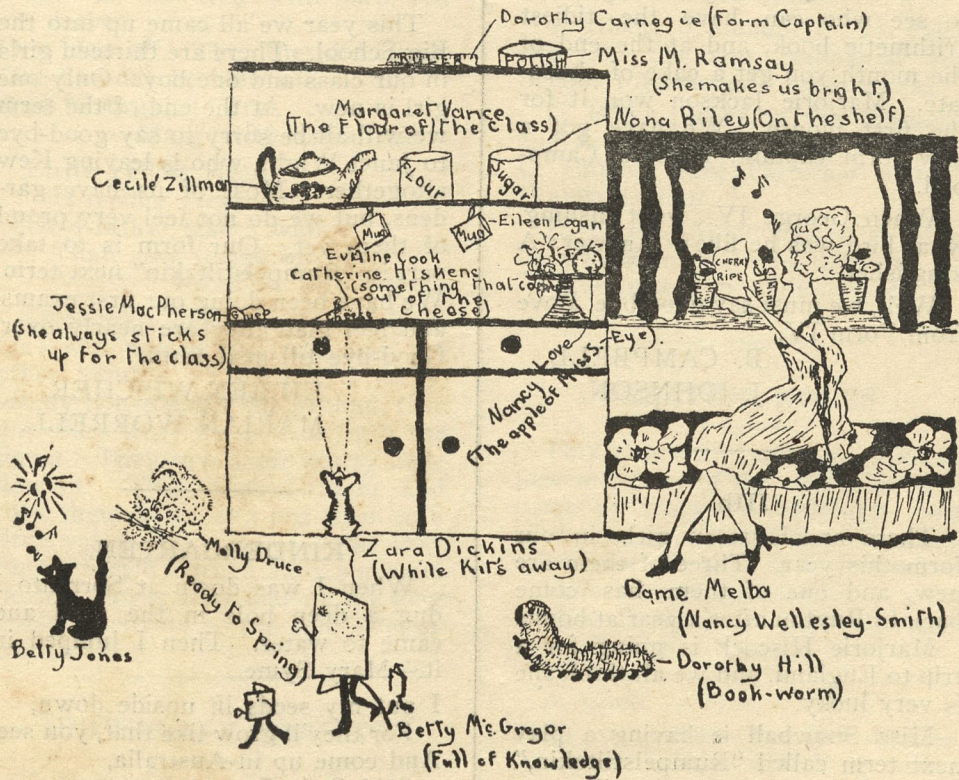 Dorothy Carnegie (Form Captain)
RULER
POLISH
Miss M. Ramsay
(She makes us bright)
Margaret Vance
(The Flour of the Class)
Nona Riley (On the shelf)
Cecile Zillman
FLOUR
Sugar
Mug
Mug
Eileen Logan
Eveline Cook
Catherine Hiskens
(Something that came
out of the
cheese)
CHERRY
RIPE
Jessie MacPherson
(she always sticks
up for the class)
Nancy Love
(The apple of Miss S.-Eye)
Molly Druce
(Ready to Spring)
Zara Dickins
(While Kit's away)
Betty Jones
Dame Melba
(Nancy Wellesley-Smith)
Dorothy Hill
(Book-worm)
Betty McGregor
(Full of Knowledge)